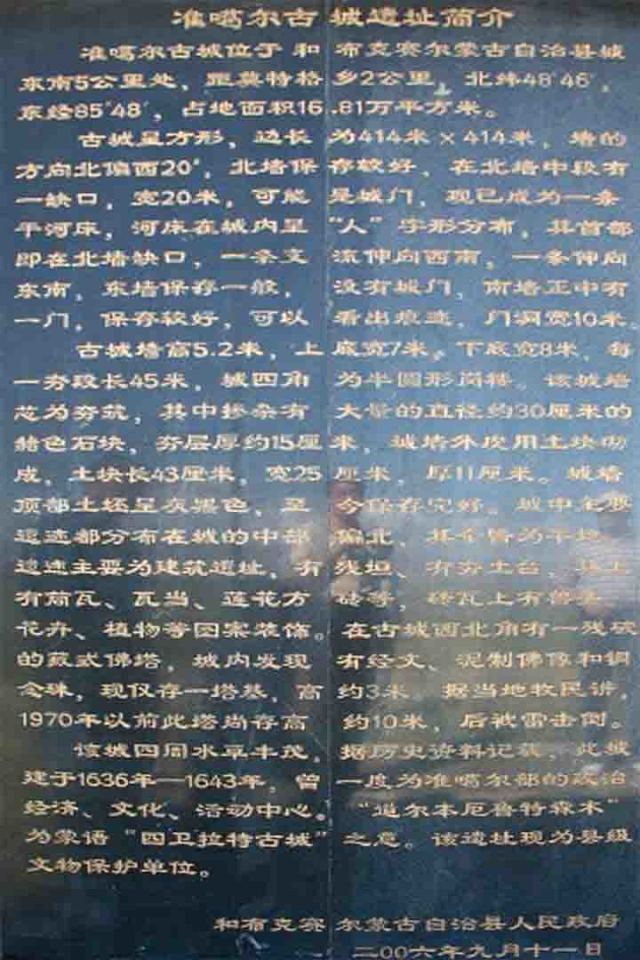 准噶尔古城遗址简介
准噶尔古城位于和布克赛尔蒙古自治县城
东南5公里处，距莫特格乡2公里，北纬48°46′，
东经85°48′，占地面积16.81万平方米。
古城呈方形，边长为414米×414米，墙的
方向北偏西20°，北墙保存较好，在北墙中段有
一缺口，宽20米，可能是城门，现已成为一条
干河床，河床在城内呈“人”字形分布，其首部
即在北墙缺口，一条支流伸向西南，一条伸向
东南，东墙保存一般，没有城门，南墙正中有
一门，保存较好，可以看出痕迹，门洞宽10米。
古城墙高5.2米，上底宽7米，下底宽8米，每
一夯段长45米，城四角为半圆形岗楼。该城墙
芯为夯筑，其中掺杂有大量的直径约30厘米的
赭色石块，夯层厚约15厘米，城墙外皮用土块砌
成，土块长43厘米，宽25厘米，厚11厘米。城墙
顶部土坯呈灰黑色，至今保存完好。城中主要
遗迹都分布在城的中部偏北，其余皆为平地，
遗迹主要为建筑遗址，有残垣、有夯土台，其上
有筒瓦、瓦当、莲花方砖等，砖瓦上有兽
花卉、植物等图案装饰。在古城西北角有一残破
的藏式佛塔，城内发现有经文、泥制佛像和铜
念珠，现仅存一塔基，高约3米。据当地牧民讲，
1970年以前此塔尚存高约10米，后被雷击倒。
该城四周水草丰茂，据历史资料记载，此城
建于1636年—1643年，曾一度为准噶尔部的政治
经济、文化、活动中心。“道尔本厄鲁特森木”
为蒙语“四卫拉特古城”之意。该遗址现为县级
文物保护单位。
和布克赛尔蒙古自治县人民政府
二00六年九月十一日